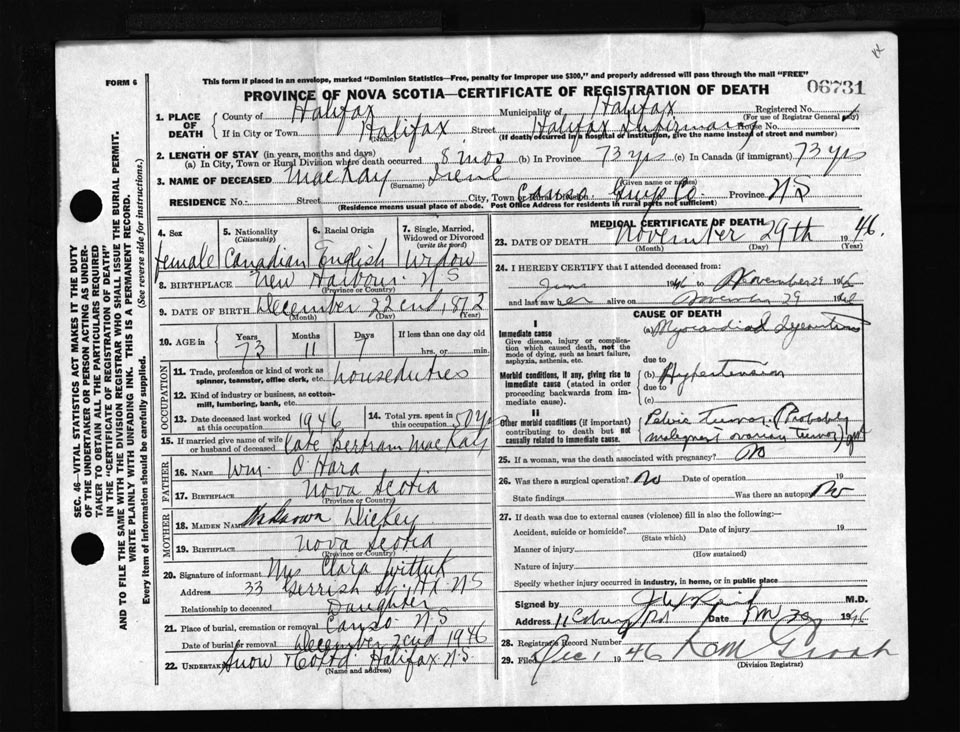 FORM 6
This form if placed in an envelope, marked "Dominion Statistics—Free, penalty for improper use $300," and properly addressed will pass through the mail "FREE"
PROVINCE OF NOVA SCOTIA—CERTIFICATE OF REGISTRATION OF DEATH
06731
SEC. 46—VITAL STATISTICS ACT MAKES IT THE DUTY
OF THE UNDERTAKER OR PERSON ACTING AS UNDER-
TAKER TO OBTAIN ALL THE PARTICULARS REQUIRED
IN THE "CERTIFICATE OF REGISTRATION OF DEATH"
AND TO FILE THE SAME WITH THE DIVISION REGISTRAR WHO SHALL ISSUE THE BURIAL PERMIT.
WRITE PLAINLY WITH UNFADING INK. THIS IS A PERMANENT RECORD.
Every item of information should be carefully supplied. (See reverse side for instructions.)
1. PLACE OF DEATH County of Halifax Municipality of Halifax Registered No.
(For use of Registrar General only)
If in City or Town Halifax Street Halifax Infirmary House No.
(Name) (If death occurred in a hospital or institution, give the name instead of street and number)
2. LENGTH OF STAY (in years, months and days)
(a) In City, Town or Rural Division where death occurred 8 mos (b) In Province 73 yrs (c) In Canada (if immigrant) 73 yrs
3. NAME OF DECEASED MacKay Irene
(Surname) (Given name or names)
RESIDENCE No. Street City, Town or Rural Division Canso Guys Co. Province N S
(Residence means usual place of abode. Post Office Address for residents in rural parts not sufficient)
4. Sex 5. Nationality (Citizenship) 6. Racial Origin 7. Single, Married, Widowed or Divorced (write the word)
Female Canadian English Widow
8. BIRTHPLACE New Harbour N S
(Province or Country)
9. DATE OF BIRTH December 22nd, 1872
(Month) (Day) (Year)
10. AGE in Years Months Days If less than one day old
73 11 7 hrs. or min.
OCCUPATION
11. Trade, profession or kind of work as spinner, teamster, office clerk, etc. houseduties
12. Kind of industry or business, as cotton-mill, lumbering, bank, etc.
13. Date deceased last worked at this occupation 1946 14. Total yrs. spent in this occupation 50 yrs
15. If married give name of wife or husband of deceased Late Bertram MacKay
FATHER
16. NAME Wm. O'Hara
17. BIRTHPLACE Nova Scotia
(Province or Country)
MOTHER
18. MAIDEN NAME Unknown Dickey
19. BIRTHPLACE Nova Scotia
(Province or Country)
20. Signature of informant Mrs Clara
Address 33 Gerrish St. Hx. N S
Relationship to deceased Daughter
21. Place of burial, cremation or removal Canso N S
Date of burial or removal December 2nd 1946
22. UNDERTAKER Snow & Co Ltd. Halifax N.S.
(Name and address)
MEDICAL CERTIFICATE OF DEATH
23. DATE OF DEATH November 29th 1946.
(Month) (Day) (Year)
24. I HEREBY CERTIFY that I attended deceased from
June 1946 to November 29 1946
and last saw her alive on November 29 1946
CAUSE OF DEATH
I
Immediate cause
Give disease, injury or complication which caused death, not the mode of dying, such as heart failure, asphyxia, asthenia, etc.
(a) Myocardial Degeneration
due to
Morbid conditions, if any, giving rise to immediate cause (stated in order proceeding backwards from immediate cause).
(b) Hypertension
due to
(c)
II
Other morbid conditions (if important) contributing to death but not causally related to immediate cause.
Pelvic tumor. (Probably
malignant ovarian tumor)
25. If a woman, was the death associated with pregnancy? No
26. Was there a surgical operation? No Date of operation 19
State findings Was there an autopsy? No
27. If death was due to external causes (violence) fill in also the following:—
Accident, suicide or homicide? Date of injury 19
(State which)
Manner of injury
(How sustained)
Nature of injury
Specify whether injury occurred in industry, in home, or in public place
Signed by J W Reid M.D.
Address Date 1946
28. Registrar's Record Number
29. Filed Dec 1 1946
(Division Registrar)